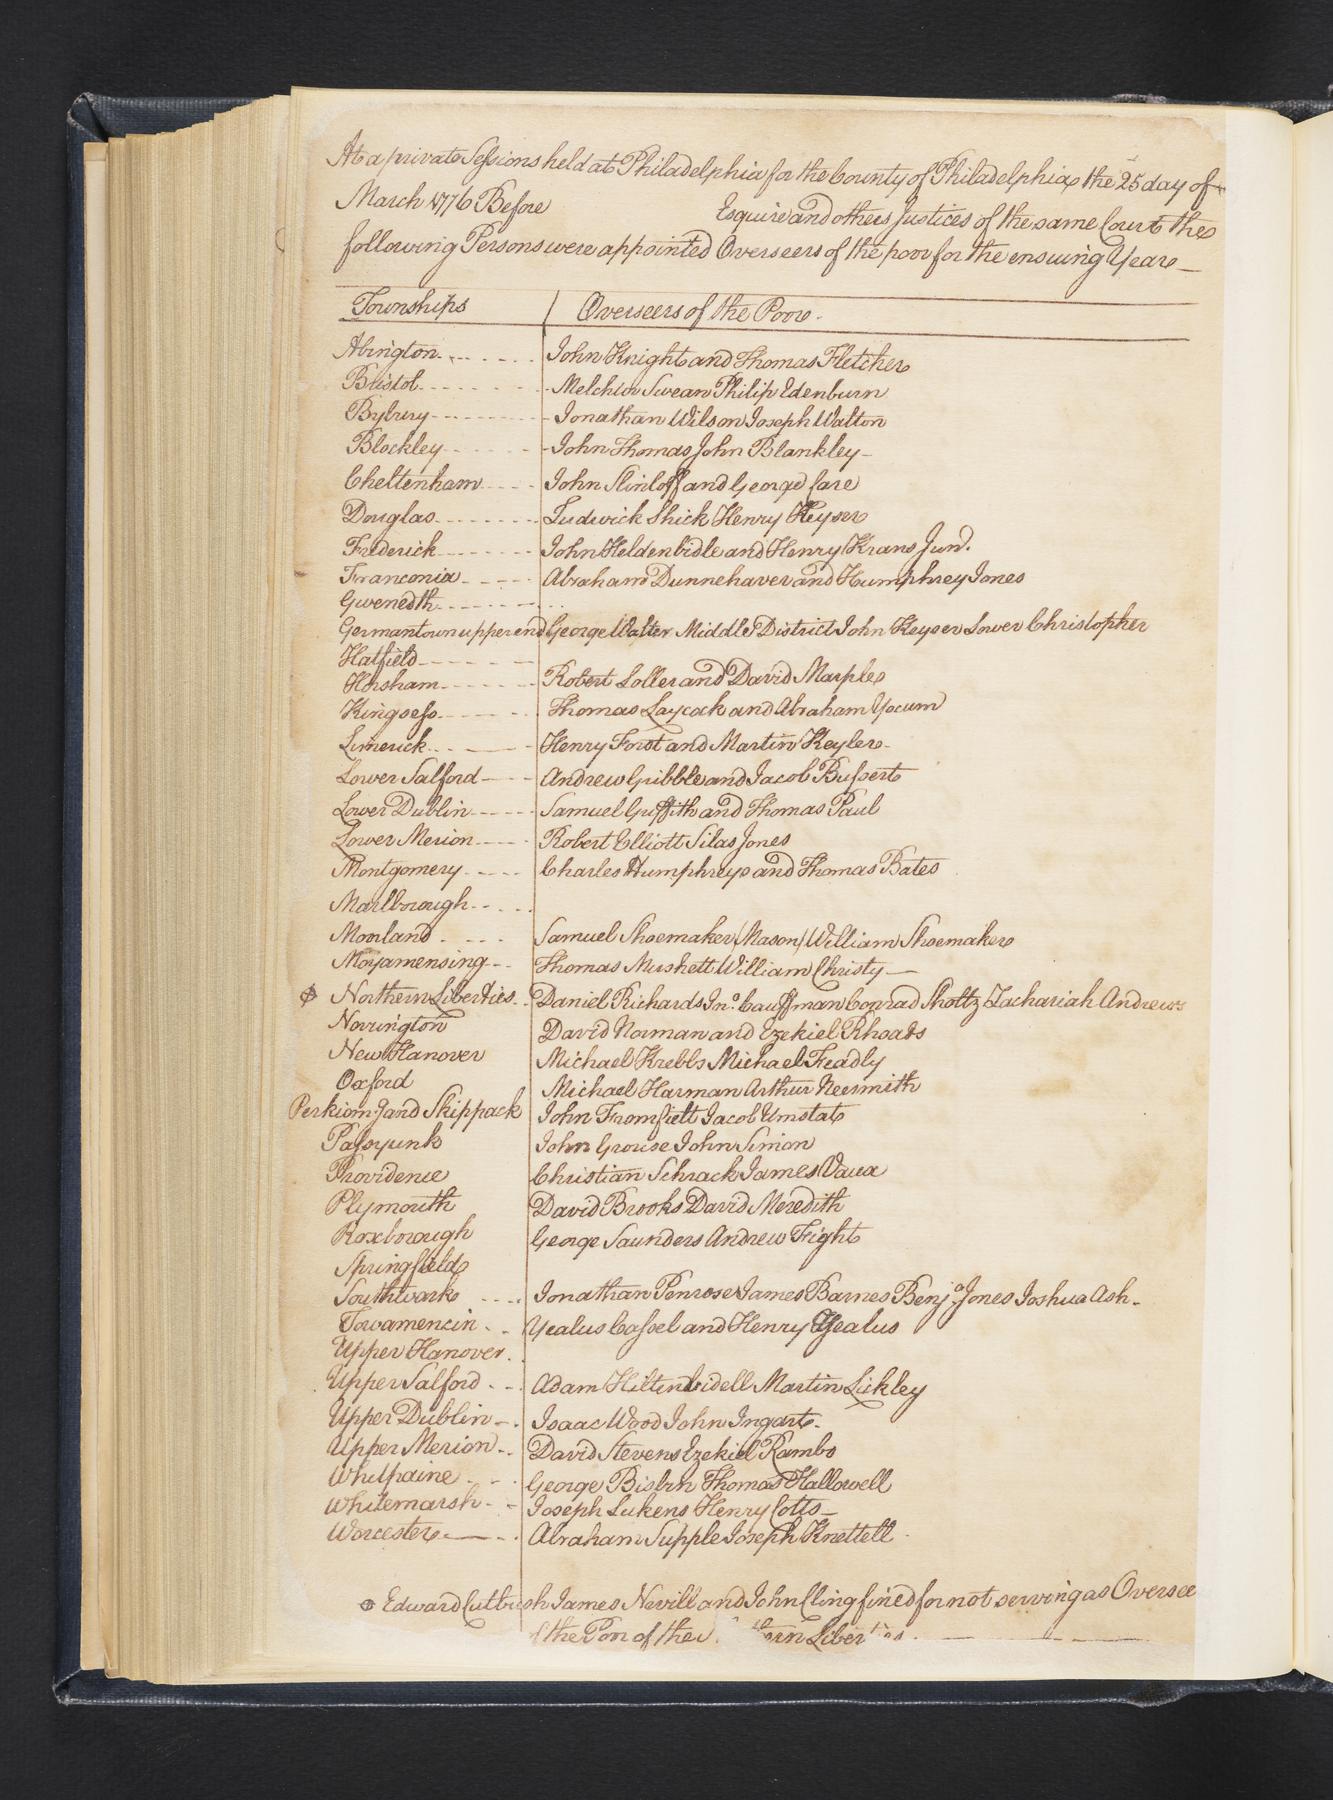 At a private Sessions held at Philadelphia for the County of Philadelphia the 25 day of
March 1776 Before Esquire and others Justices of the same Court the
following Persons were appointed Overseers of the poor for the ensuing Year
Townships Overseers of the Poor.
Abington John Knight and Thomas Fletcher
Bristol Melchior Swean Philip Edenburn
Byberry Jonathan Wilson Joseph Walton
Blockley John Thomas John Blankley
Cheltenham John Slinloff and George Care
Douglas Ludwick Shick Henry Keyser
Frederick John Heldenbidle and Henry Krans Junr.
Franconia Abraham Dunnehaver and Humphrey Jones
Gwenedth
Germantown upper end George Walter Middle District John Keyser Lower Christopher
Hatfield
Horsham Robert Loller and David Marple
Kingsess Thomas Laycock and Abraham Yocum
Limerick Henry Frost and Martin Keyler
Lower Salford Andrew Gribble and Jacob Bussert
Lower Dublin Samuel Griffith and Thomas Paul
Lower Merion Robert Elliott Silas Jones
Montgomery Charles Humphreys and Thomas Bates
Marlborough
Morland Samuel Shoemaker (Mason) William Shoemaker
Moyamensing Thomas Mushett William Christy
Φ Northern Liberties Daniel Richards Jno. Cauffman Conrad Sholtz Zachariah Andrews
Norrington David Norman and Ezekiel Rhoads
New Hanover Michael Krebbs Michael Freadly
Oxford Michael Harman Arthur Neesmith
Perkiomg and Skippack John Fromfielt Jacob Umstat
Passyunk John Grouse John Simon
Providence Christian Schrack James Vaux
Plymouth David Brooks David Meredith
Roxborough George Saunders Andrew Fright
Springfield
Southwark Jonathan Penrose James Barnes Benja. Jones Joshua Ash
Towamencin Yealus Cassel and Henry Yealus
Upper Hanover
Upper Salford Adam Hiltenbidell Martin Lickley
Upper Dublin Isaac Wood John Ingart
Upper Merion David Stevens Ezekiel Rambo
Whitpaine George Bisbin Thomas Hallowell
Whitemarsh Joseph Lukens Henry Cotts
Worcester Abraham Supple Joseph Knettell
Φ Edward Cutbush James Nevill and John Cling fined for not serving as Oversee
of the Poor of the thern Liberties